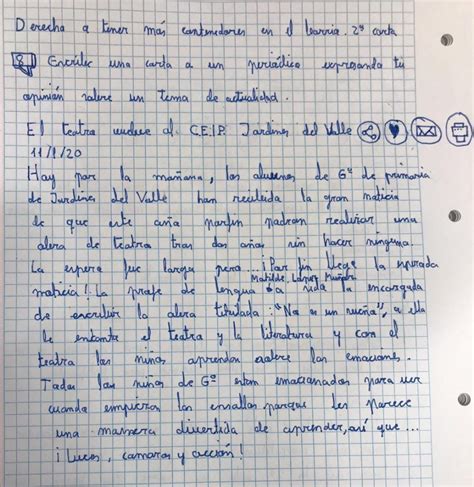 Derecho a tener más contenedores en el barrio. 2ª carta
8 Escribe una carta a un periódico expresando tu
opinión sobre un tema de actualidad.
El teatro vuelve al C.E.I.P. Jardines del Valle
11/1/20
Hoy por la mañana, los alumnos de 6º de primaria
de Jardines del Valle han recibido la gran noticia
de que este año por fin podran realizar una
obra de teatro tras dos años sin hacer ninguna.
La espera fue larga pero... ¡Por fin llego la esperada
Matilde López
noticia! La profe de lengua ha sido la encargada
de escribir la obra titulada: "No es un sueño", a ella
le encanta el teatro y la literatura y con el
teatro los niños aprenden sobre las emociones.
Todos los niños de 6º estan emocionados para ver
cuando empiezan los ensallos porque les parece
una manera divertida de aprender, así que ...
¡Luces, camaras y acción!